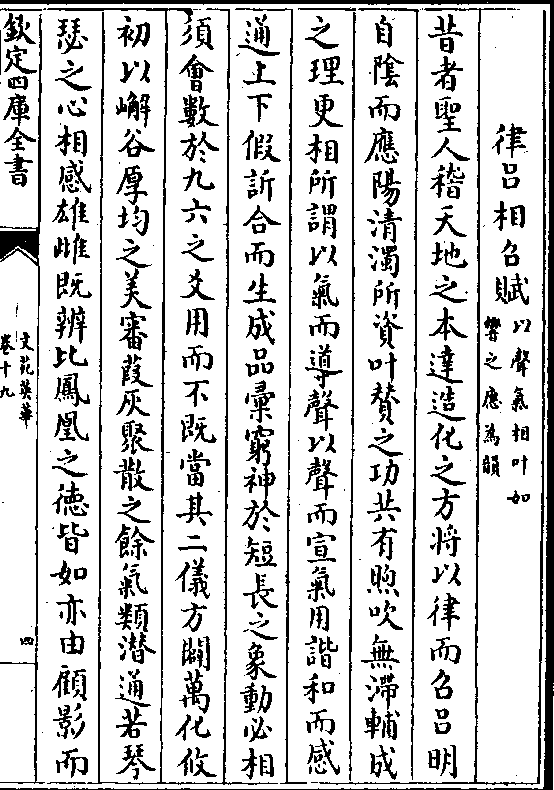 律呂相召賦以聲氣相叶如響之應為韻
昔者聖人稽天地之本達造化之方將以律而召呂明
自陰而應陽清濁所資叶賛之功共有煦吹無滯輔成
之理更相所謂以氣而導聲以聲而宣氣用諧和而感
通上下假訢合而生成品彚窮神於短長之象動必相
須會數於九六之爻用而不既當其二儀方闢萬化攸
初以嶰谷厚均之美審葭灰聚散之餘氣類潜通若琴
瑟之心相感雄雌既辨比鳳凰之徳皆如亦由顧影而
欽定四庫全書
文苑英華
卷十九
四